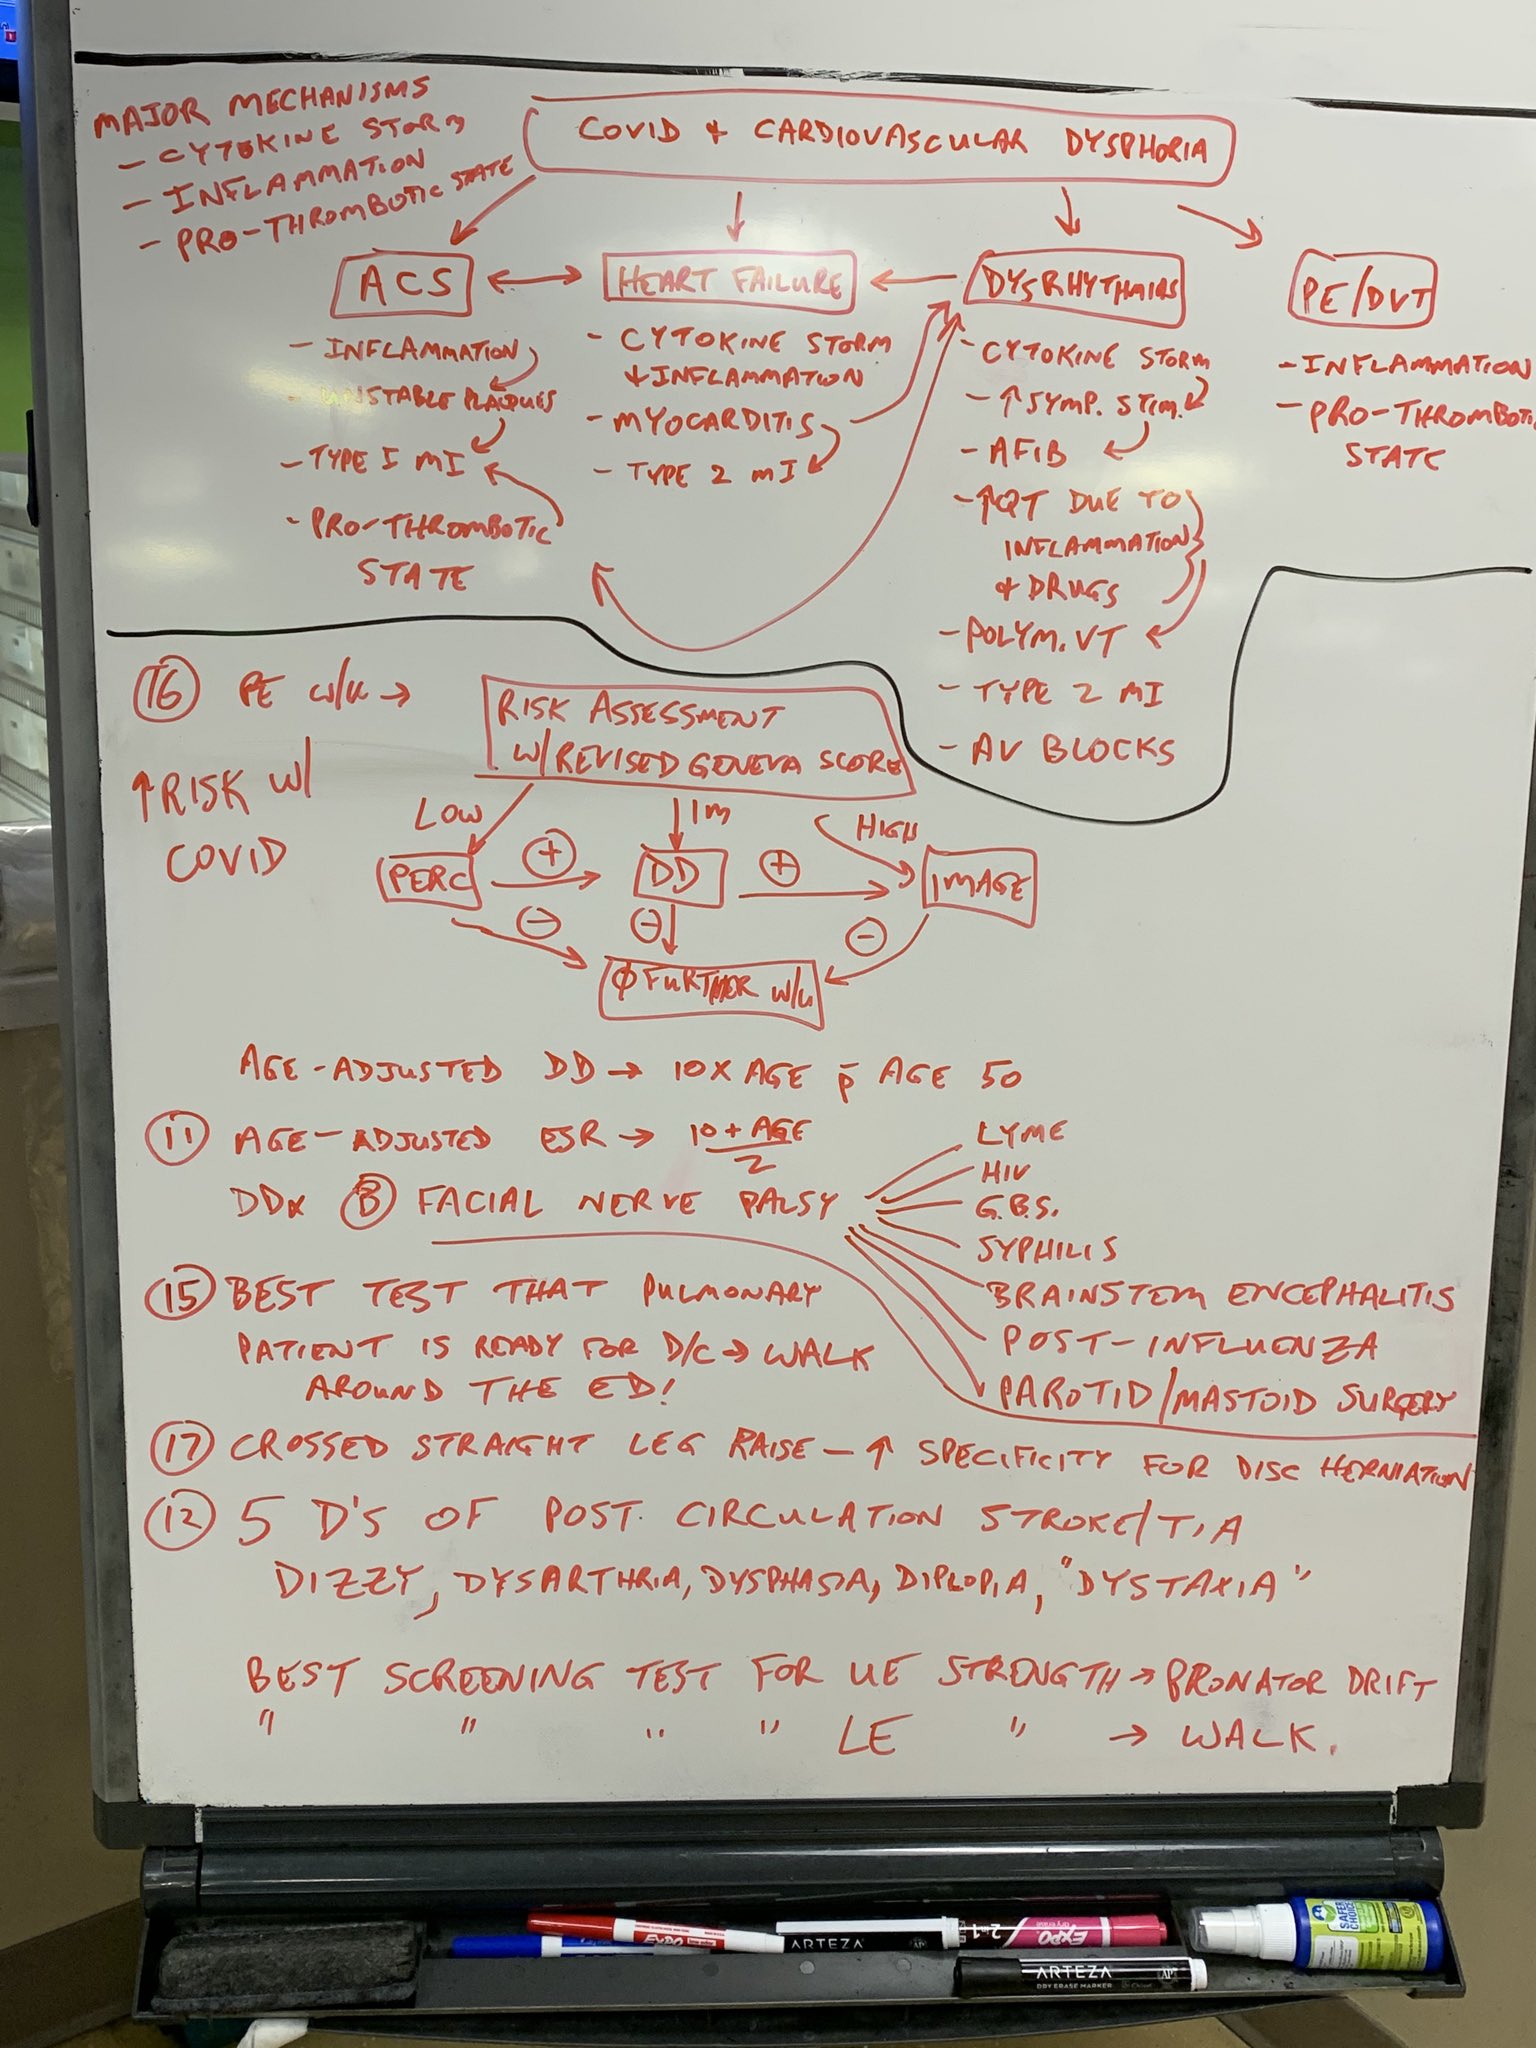 MAJOR MECHANISMS
- CYTOKINE STORM
- INFLAMMATION
- PRO-THROMBOTIC STATE
COVID & CARDIOVASCULAR DYSPHORIA
ACS
- INFLAMMATION
- UNSTABLE PLAQUES
- TYPE I MI
- PRO-THROMBOTIC
STATE
HEART FAILURE
- CYTOKINE STORM
& INFLAMMATION
- MYOCARDITIS
- TYPE 2 MI
DYSRHYTHMIAS
- CYTOKINE STORM
- ↑ SYMP. STIM.
- AFIB
- ↑QT DUE TO
INFLAMMATION
& DRUGS
- POLYM. VT
- TYPE 2 MI
- AV BLOCKS
PE/DVT
- INFLAMMATION
- PRO-THROMBOTIC
STATE
16 PE W/U → RISK ASSESSMENT
W/ REVISED GENEVA SCORE
↑RISK W/
COVID
LOW IM HIGH
PERC + DD + IMAGE
- - -
Ø FURTHER W/U
AGE-ADJUSTED DD → 10X AGE p̄ AGE 50
11 AGE-ADJUSTED ESR → 10 + AGE
2
DDx B FACIAL NERVE PALSY
LYME
HIV
G.B.S.
SYPHILIS
BRAINSTEM ENCEPHALITIS
POST-INFLUENZA
PAROTID/MASTOID SURGERY
15 BEST TEST THAT PULMONARY
PATIENT IS READY FOR D/C → WALK
AROUND THE ED!
17 CROSSED STRAIGHT LEG RAISE - ↑ SPECIFICITY FOR DISC HERNIATION
12 5 D'S OF POST. CIRCULATION STROKE/TIA
DIZZY, DYSARTHRIA, DYSPHASIA, DIPLOPIA, "DYSTAXIA"
BEST SCREENING TEST FOR UE STRENGTH → PRONATOR DRIFT
" " " " LE " → WALK.
EXPO
ARTEZA
2 in 1
EXPO
ARTEZA
DRY ERASE MARKER
AP
SAFER
CHOICE